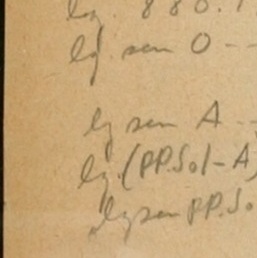 lg. 880.
lg sen O --
lg sen A --
lg (PP.Sol-A)
lg sen PP.So